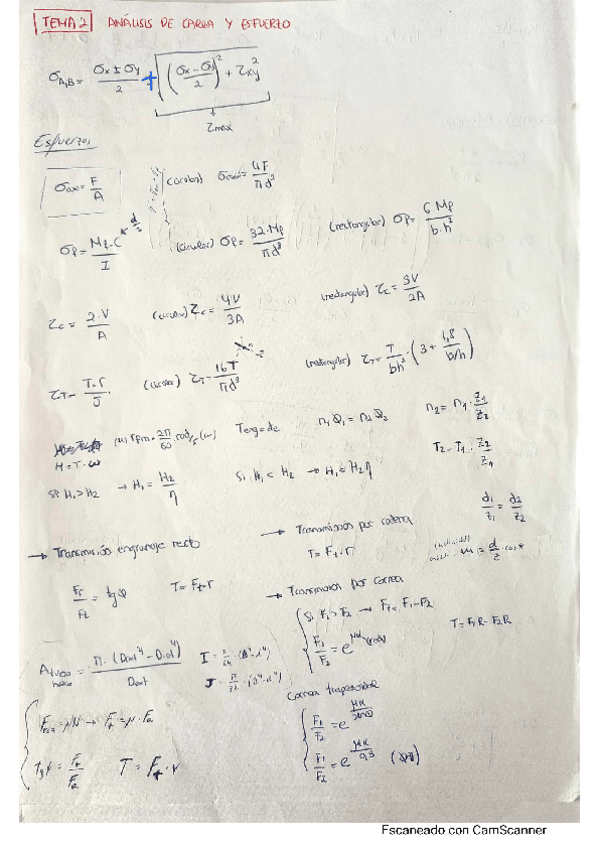 TEMA 2 ANÁLISIS DE CARGA Y ESFUERZO
σA,B = (σx ± σy)/2 + √(((σx - σy)/2)² + τxy²)
τmax
Esfuerzos
σaxi = F/A (circular) σaxi = 4F/πd²
σf = Mf·C/I (circular) σf = 32·Mf/πd³ (rectangular) σf = 6 Mf/b·h²
τc = 2·V/A (circular) τc = 4V/3A (rectangular) τc = 3V/2A
τT = T·r/J (circular) τT = 16T/πd³ (rectangular) τT = T/bh² · (3 + 1,8/b/h)
(n) rpm · 2π/60 rad/s (ω) n2 = n1 · z1/z2
H = T·ω T2 = T1 · z2/z1
Si H1 > H2 → H1 = H2/η Si H1 < H2 → H1 = H2 η
d1/z1 = d2/z2
→ Transmisión engranaje recto → Transmisión por cadena
T = Ft·r
Fr/Ft = tg φ T = Ft·r → Transmisión por correa
Si F1 > F2 → Ft = F1 - F2
F1/F2 = e T = F1R - F2R
A tubo hueco = π·(Dext⁴ - Dint⁴)/Dext I = J = π/32
Correa trapezoidal
Froz = μN → Ft = μ·Fa F1/F2 = e
tg φ = Ft/Fa T = Ft·r F1/F2 = e
Escaneado con CamScanner